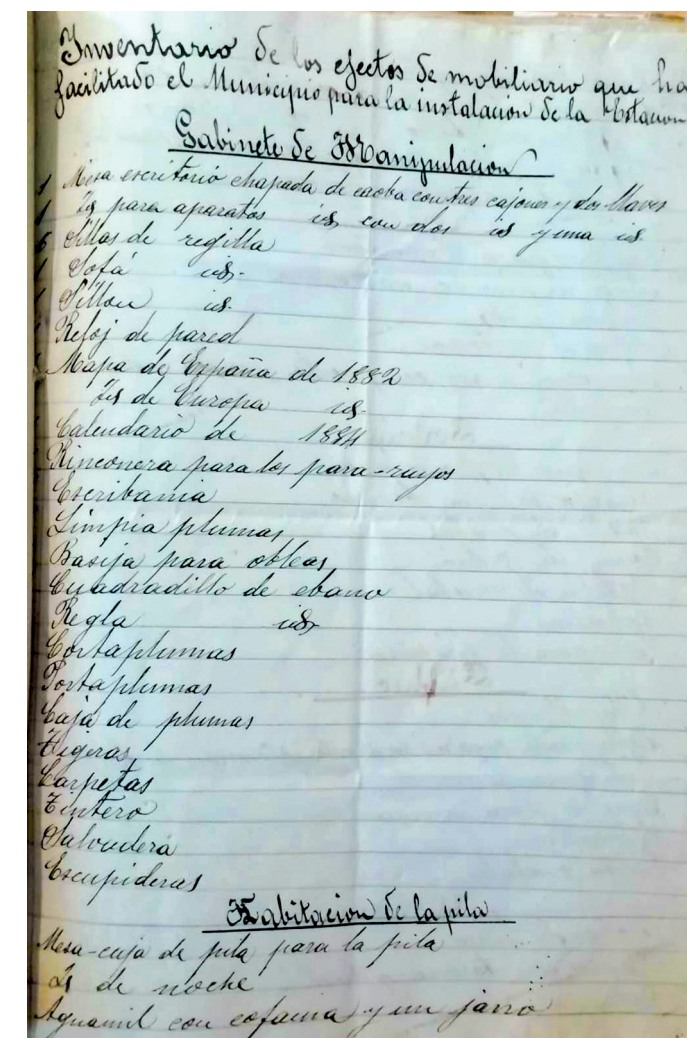 Inventario de los efectos de mobiliario que ha
facilitado el Municipio para la instalacion de la Estacion
Gabinete de Manipulacion
1 Mesa escritorio chapada de caoba con tres cajones y dos llaves
1 Id para aparatos id con dos id y una id
6 Sillas de regilla
1 Sofá id
1 Sillon id
1 Reloj de pared
1 Mapa de España de 1882
Id de Europa id
Calendario de 1884
Rinconera para los para-rayos
Escribania
Limpia plumas
Basija para obleas
Cuadradillo de ebano
Regla id
Cortaplumas
Portaplumas
Caja de plumas
Tigeras
Carpetas
Tintero
Salvadera
Escupideras
Habitacion de la pila
Mesa-caja de pila para la pila
Id de noche
Aguamil con cofaina y un jarro